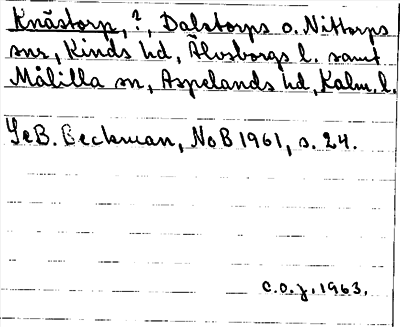 Knästorp, ?, Dalstorps o. Nittorps
snr, Kinds hd, Älvsborgs l. samt
Målilla sn, Aspelands hd, Kalm. l.
Se B. Beckman, NoB 1961, s. 24.
C.O.J. 1963.